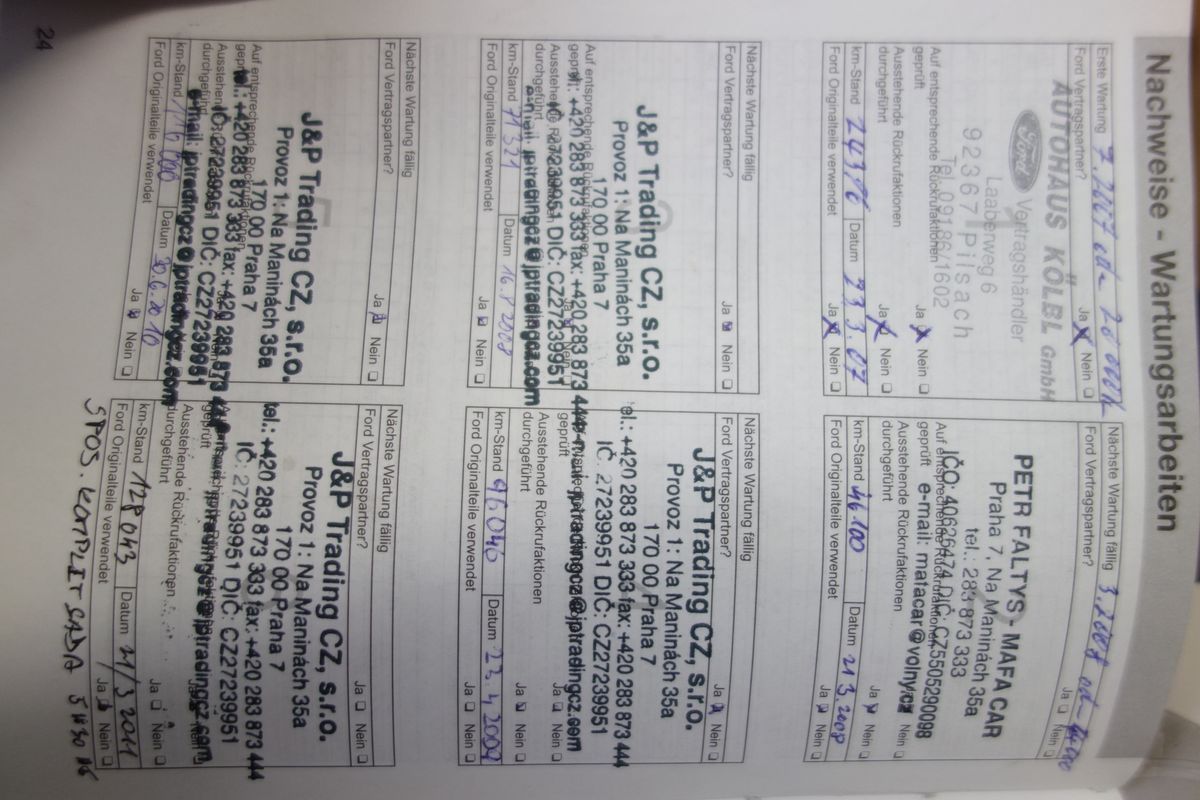 Nachweise - Wartungsarbeiten
Erste Wartung 7.2007
Ford Vertragspartner? Ja Nein
AUTOHAUS KÖLBL GmbH
Ford Vertragshändler
Laaberweg 6
92367 Pilsach
Tel. 09186/1602
Auf entsprechende Rückrufaktionen
geprüft Ja Nein
Ausstehende Rückrufaktionen
durchgeführt Ja Nein
km-Stand Datum 23.3.07
Ford Originalteile verwendet Ja Nein
Nächste Wartung fällig 3.2008
Ford Vertragspartner? Ja Nein
PETR FALTYS - MAFA CAR
Praha 7, Na Maninách 35a
tel.: 283 873 333
IČO: 40625474 DIČ: CZ5505290098
Auf entsprechende Rückrufaktionen
geprüft e-mail: mafacar@volny.cz Nein
Ausstehende Rückrufaktionen
durchgeführt Ja Nein
km-Stand 46100 Datum 21 3.2008
Ford Originalteile verwendet Ja Nein
Nächste Wartung fällig
Ford Vertragspartner? Ja Nein
J&P Trading CZ, s.r.o.
Provoz 1: Na Maninách 35a
170 00 Praha 7
Auf entsprechende Rückrufaktionen
geprüft tel.: +420 283 873 333 fax: +420 283 873 444
Ausstehende Rückrufaktionen
IČ: 27239951 DIČ: CZ27239951
durchgeführt
e-mail: jptradingcz@jptradingcz.com
km-Stand 71321 Datum 16.8 2008
Ford Originalteile verwendet Ja Nein
Nächste Wartung fällig
Ford Vertragspartner? Ja Nein
J&P Trading CZ, s.r.o.
Provoz 1: Na Maninách 35a
170 00 Praha 7
tel.: +420 283 873 333 fax: +420 283 873 444
IČ: 27239951 DIČ: CZ27239951
e-mail: jptradingcz@jptradingcz.com
geprüft Ja Nein
Ausstehende Rückrufaktionen
durchgeführt Ja Nein
km-Stand 96046 Datum 23.4.2009
Ford Originalteile verwendet Ja Nein
Nächste Wartung fällig
Ford Vertragspartner? Ja Nein
J&P Trading CZ, s.r.o.
Provoz 1: Na Maninách 35a
170 00 Praha 7
Auf entsprechende Rückrufaktionen
geprüft tel.: +420 283 873 333 fax: +420 283 873 444
Ausstehende Rückrufaktionen
IČ: 27239951 DIČ: CZ27239951
durchgeführt
e-mail: jptradingcz@jptradingcz.com
km-Stand Datum 30.6.2010
Ford Originalteile verwendet Ja Nein
Nächste Wartung fällig
Ford Vertragspartner? Ja Nein
J&P Trading CZ, s.r.o.
Provoz 1: Na Maninách 35a
170 00 Praha 7
tel.: +420 283 873 333 fax: +420 283 873 444
IČ: 27239951 DIČ: CZ27239951
geprüft jptradingcz@jptradingcz.com
Ausstehende Rückrufaktionen
durchgeführt Ja Nein
km-Stand 128043 Datum 21/3 2011
Ford Originalteile verwendet Ja Nein
24